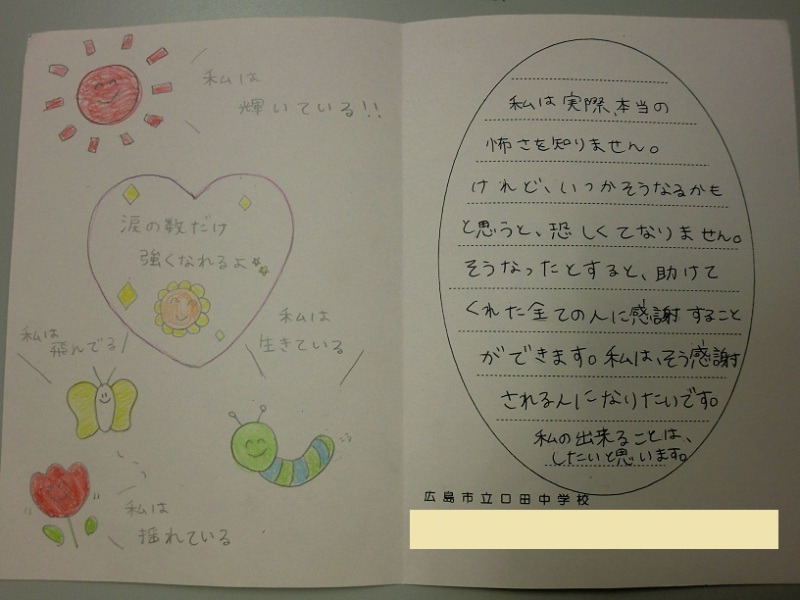 私は
輝いている!!
涙の数だけ
強くなれるよ
私は
飛んでる
私は
生きている
私は
揺れている
私は実際、本当の
怖さを知りません。
けれど、いつかそうなるかも
と思うと、恐しくてなりません。
そうなったとすると、助けて
くれた全ての人に感謝すること
ができます。私は、そう感謝
される人になりたいです。
私の出来ることは、
したいと思います。
広島市立口田中学校